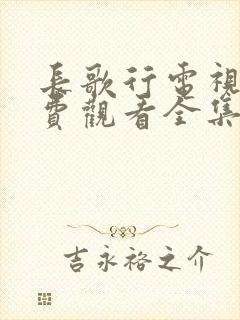 長歌行電視
費觀看全集
吉永裕之介